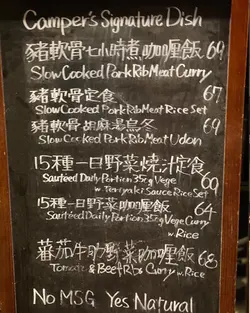 Camper's Signature Dish
豬軟骨七小時煮咖喱飯 69
Slow Cooked Pork Rib Meat Curry
豬軟骨定食 67
Slow Cooked Pork Rib Meat Rice Set
豬軟骨胡麻湯烏冬 69
Slow Cooked Pork Rib Meat Udon
15種一日野菜燒汁定食 69
Sautéed Daily Portion 350g Vege
w Teriyaki Sauce Rice Set
15種一日野菜咖喱飯 64
Sautéed Daily Portion 350g Vege Curry
w. Rice
蕃茄牛肋野菜咖喱飯 68
Tomato & Beef Ribs Curry w. Rice
No MSG Yes Natural